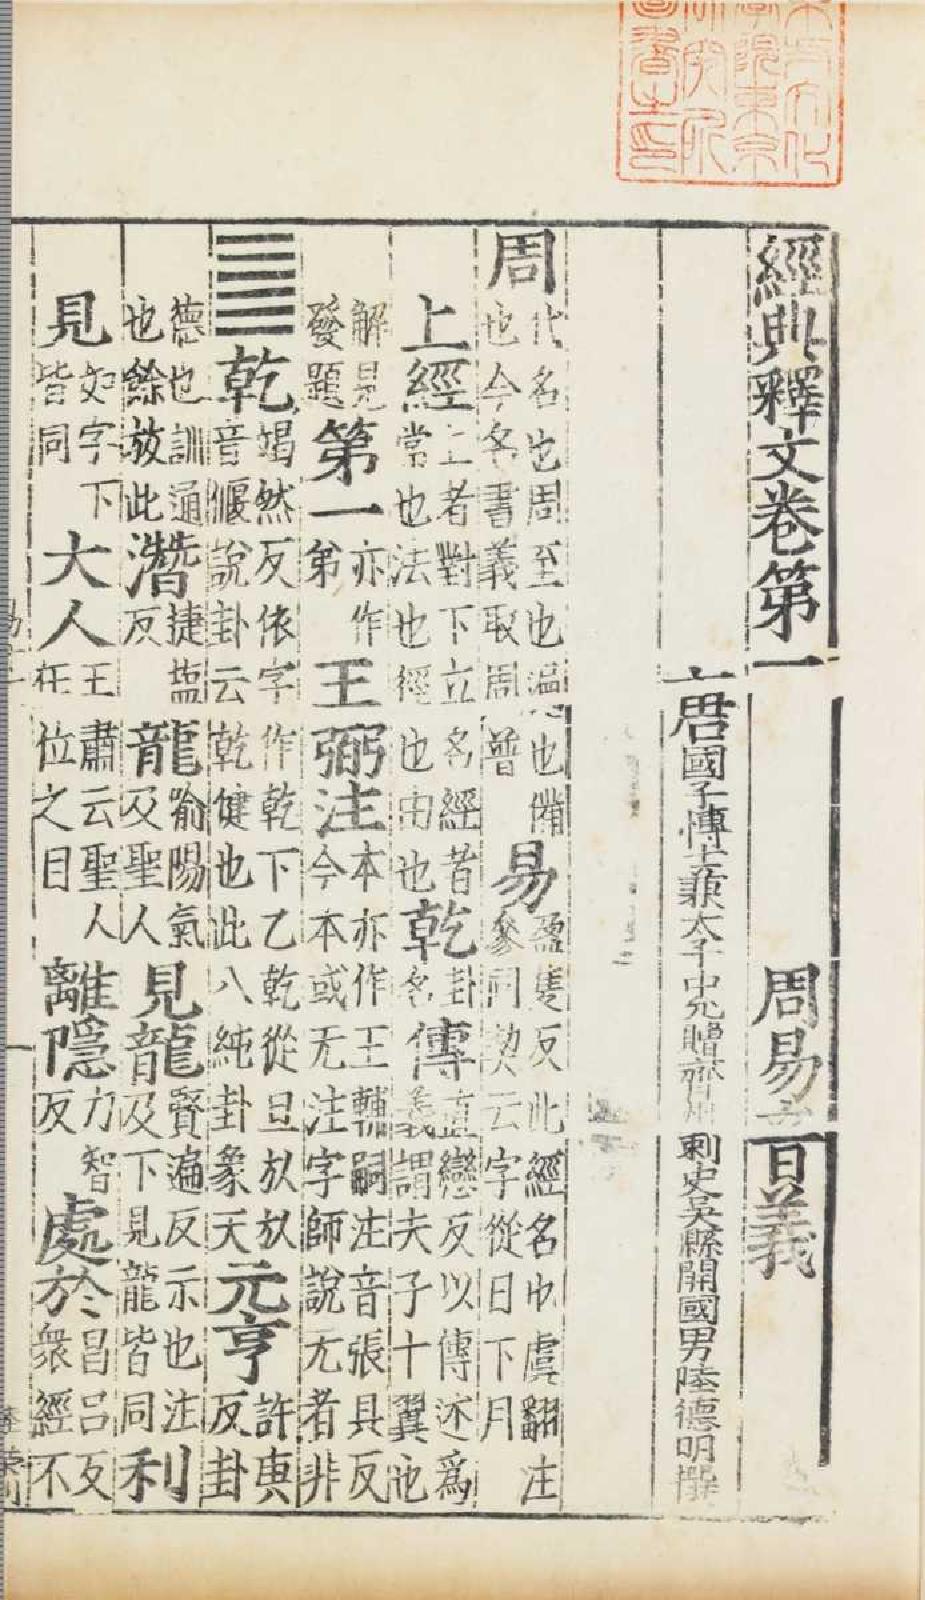 經典釋文卷第一 周易 音義
唐國子博士兼太子中允贈齊州刺史吳縣開國男陸德明撰
周
代名也周至也遍也備
也今名書義取周普
易
盈隻反此經名也虞翻注
參同契云字從日下月
上經
上者對下立名經者
常也法也徑也由也
乾
卦
名
傳
直戀反以傳述爲
義謂夫子十翼也
解見
發題
第一
亦作
弟
王弼注
本亦作王輔嗣注音張具反
今本或无注字師說无者非
䷀乾
竭然反依字作乾下乙乾從旦㫃㫃
音偃說卦云乾健也此八純卦象天
元亨
許庚
反卦
德也訓通
也餘放此
潛
捷鹽
反
龍
喻陽氣
及聖人
見龍
賢遍反示也注
及下見龍皆同
利
見
如字下
皆同
大人
王肅云聖人
在位之目
離隱
力智
反
處於
昌呂反
衆經不